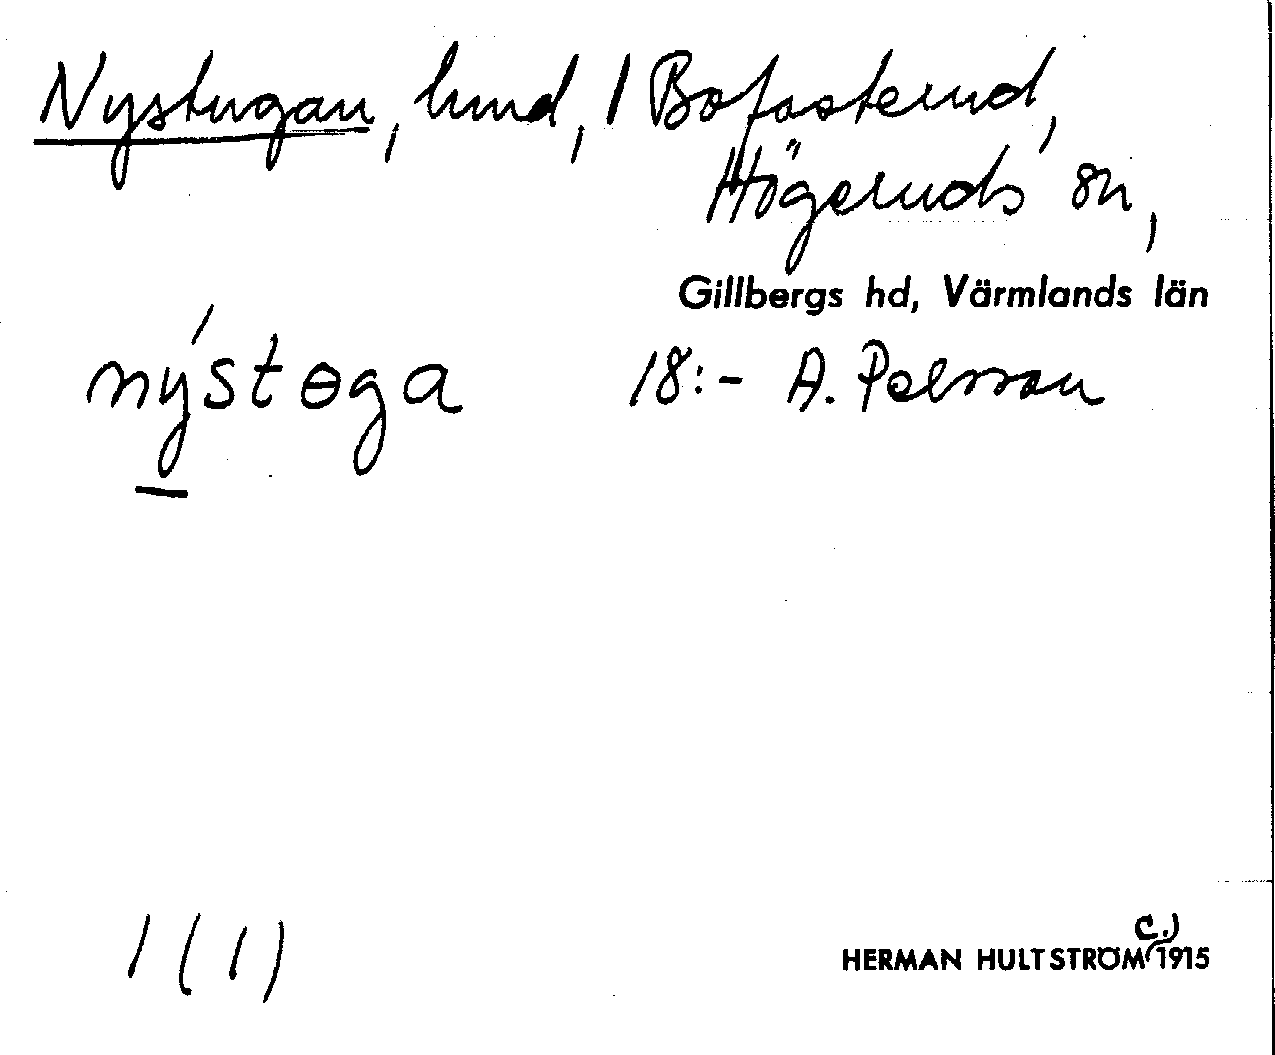 Nystugan, hmd, / Bofasterud,
Högeruds sn,
Gillbergs hd, Värmlands län
nýstɵga 18:- A. Persson
1 (1)
C.)
HERMAN HULTSTRÖM 1915